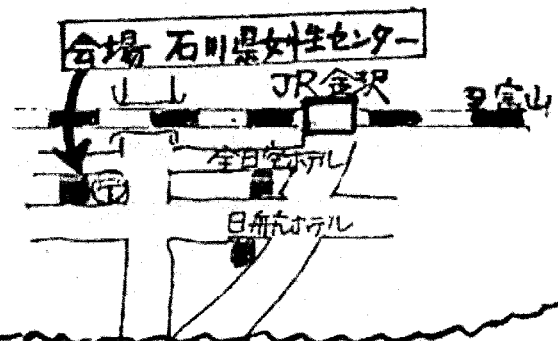 会場 石川県女性センター
JR金沢
至富山
全日空ホテル
〒
日航ホテル